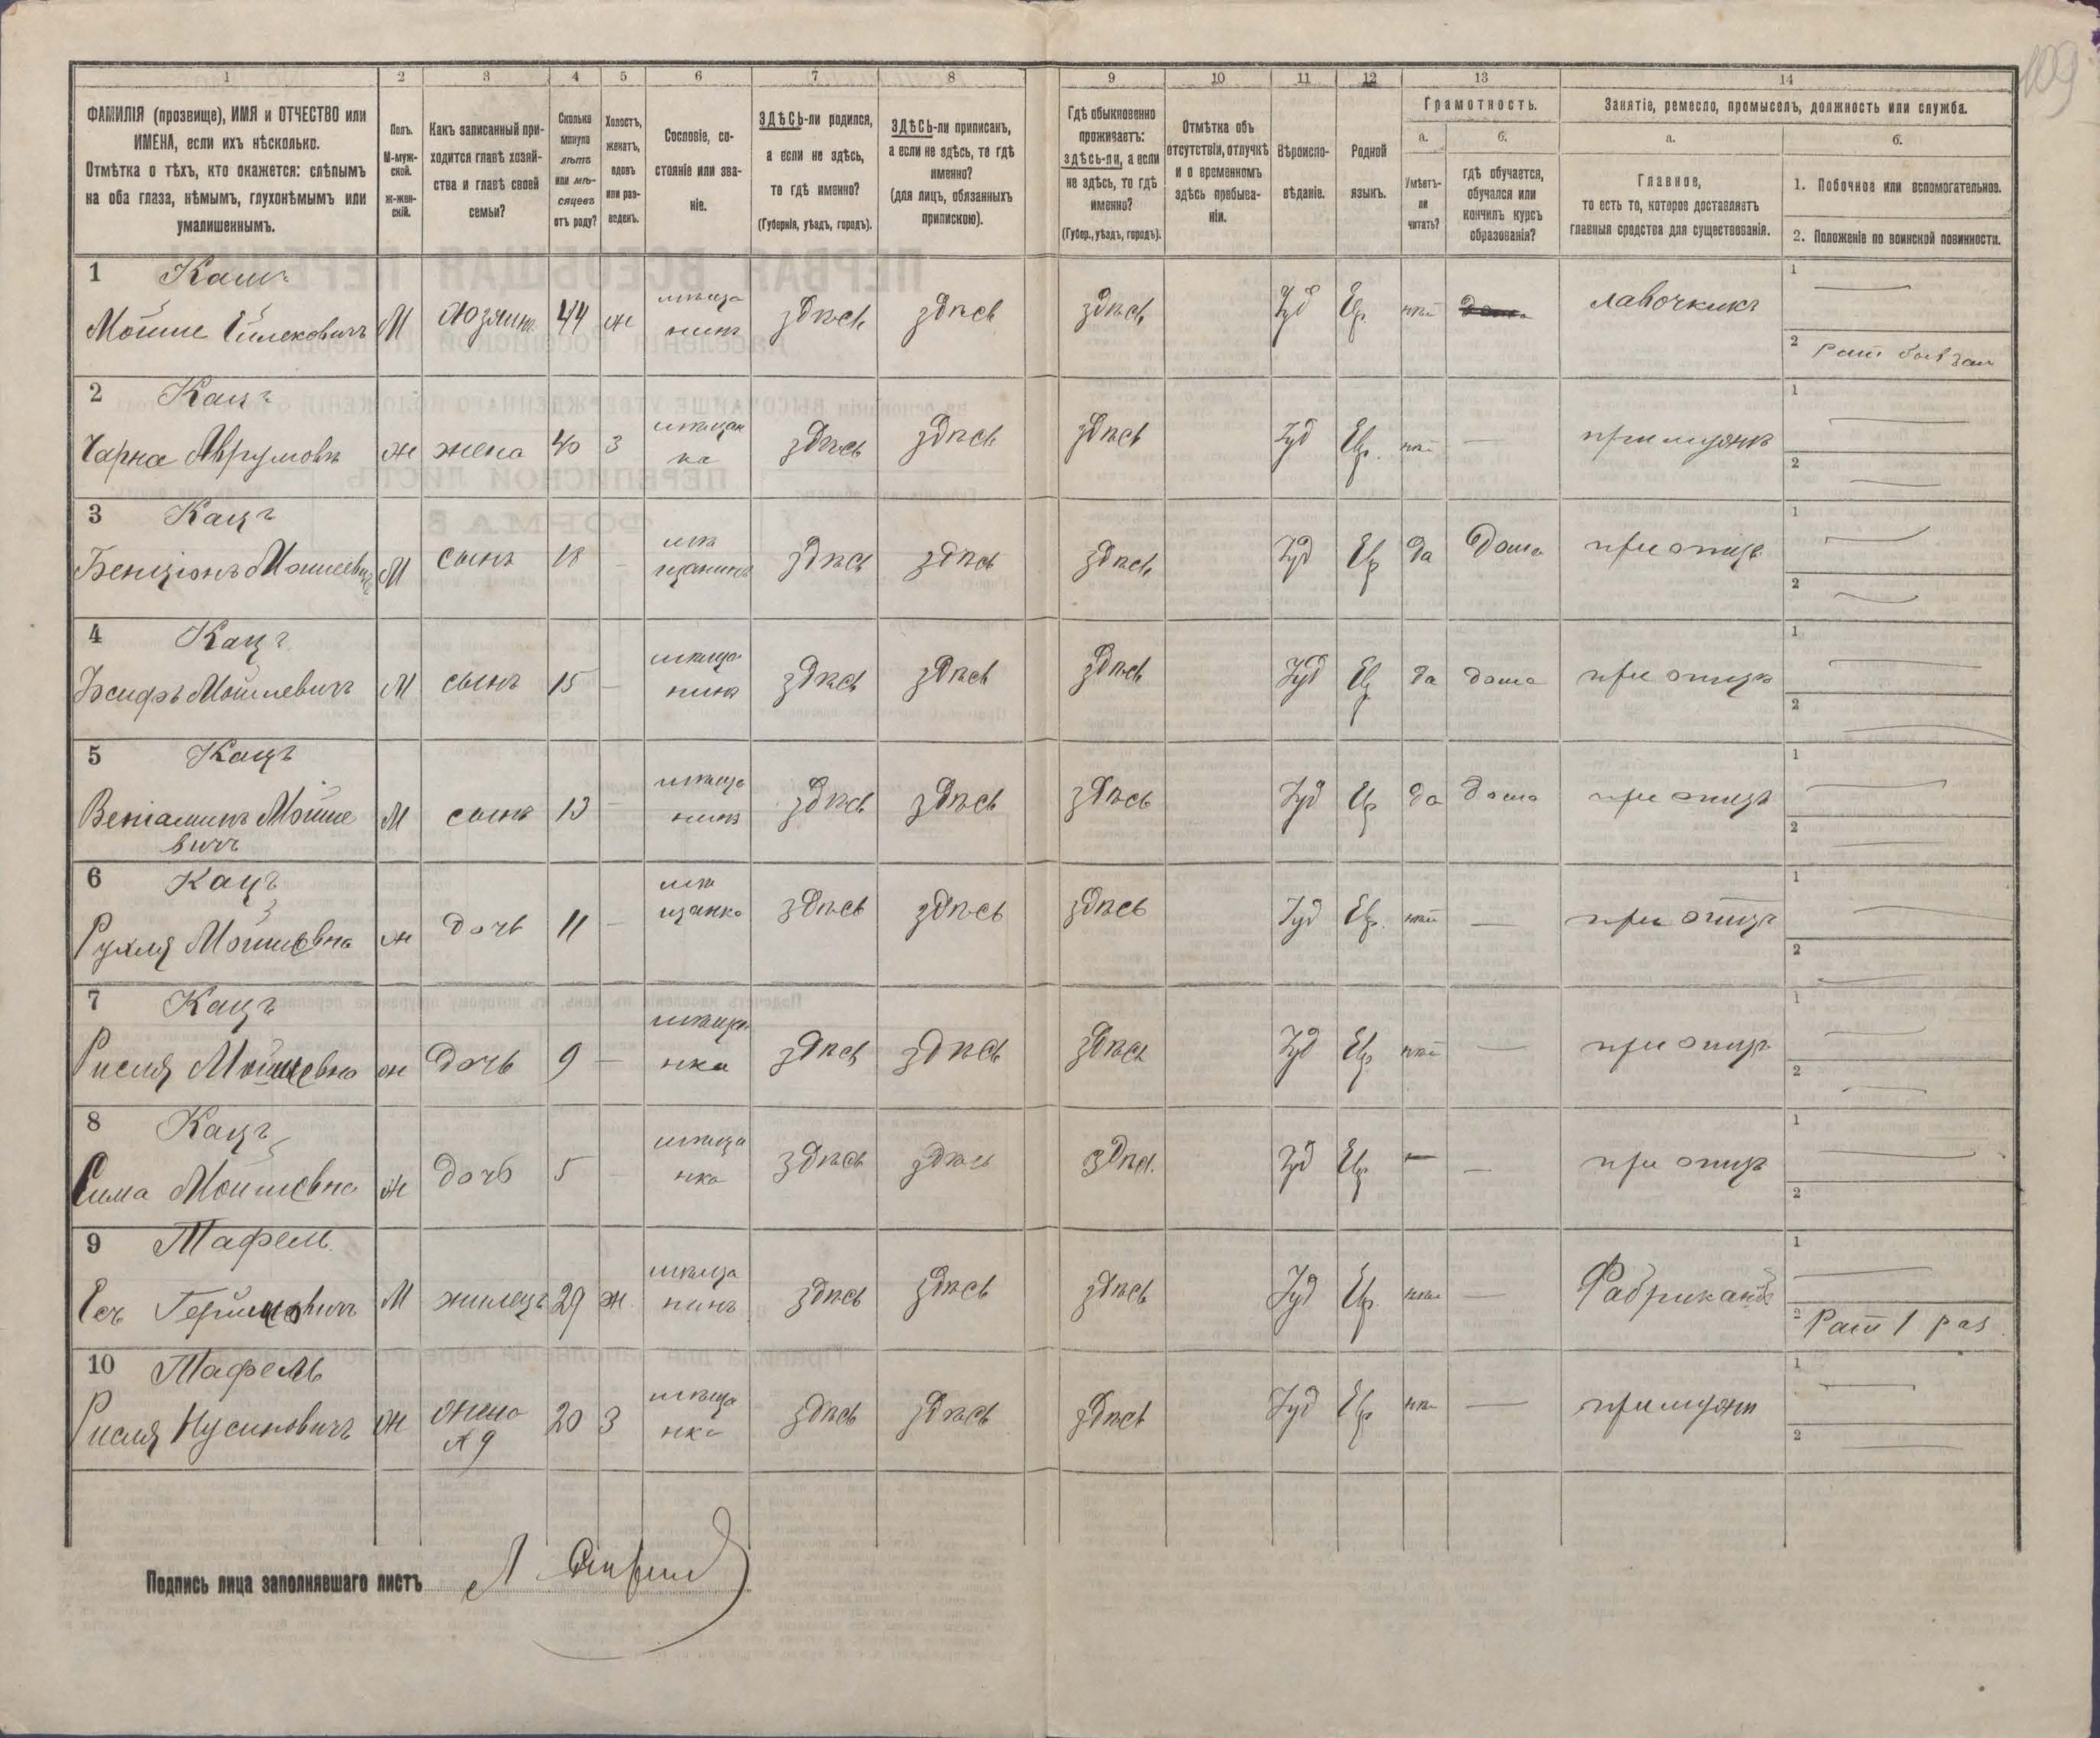 109
1 2 3 4 5 6 7 8 9 10 11 12 13 14
ФАМИЛІЯ (прозвище), ИМЯ и ОТЧЕСТВО или
ИМЕНА, если ихъ нѣсколько.
Отмѣтка о тѣхъ, кто окажется: слѣпымъ
на оба глаза, нѣмымъ, глухонѣмымъ или
умалишеннымъ.
Полъ.
М-муж-
ской.
ж-жен-
скій.
Какъ записанный при-
ходится главѣ хозяй-
ства и главѣ своей
семьи?
Сколько
минуло
лѣтъ
или мѣ-
сяцевъ
отъ роду?
Холостъ,
женатъ,
вдовъ
или раз-
веденъ.
Сословіе, со-
стояніе или зва-
ніе.
ЗДѢСЬ-ли родился,
а если не здѣсь,
то гдѣ именно?
(Губернія, уѣздъ, городъ).
ЗДѢСЬ-ли приписанъ,
а если не здѣсь, то гдѣ
именно?
(для лицъ, обязанныхъ
припискою).
Гдѣ обыкновенно
проживаетъ:
здѣсь-ли, а если
не здѣсь, то гдѣ
именно?
(Губер., уѣздъ, городъ).
Отмѣтка объ
отсутствіи, отлучкѣ
и о временномъ
здѣсь пребыва-
ніи.
Вѣроиспо-
вѣданіе.
Родной
языкъ.
Грамотность.
а.
Умѣетъ-
ли
читать?
б.
гдѣ обучается,
обучался или
кончилъ курсъ
образованія?
Занятіе, ремесло, промыселъ, должность или служба.
а.
Главное,
то есть то, которое доставляетъ
главныя средства для существованія.
б.
1. Побочное или вспомогательное.
2. Положеніе по воинской повинности.
1 Кацъ
Мойше М хозяинъ 44 ж мѣща
нинъ здѣсь здѣсь здѣсь Іуд Евр. нѣт лавочникъ
1
2
2 Кацъ
Чарна Аврумовъ ж жена 40 З мѣщан
ка здѣсь здѣсь здѣсь Іуд Евр. нѣт — при мужѣ
1 —
2 —
3 Кацъ
Бенціонъ Мошеевичъ М сынъ 18 - мѣ
щанинъ здѣсь здѣсь здѣсь Іуд Евр да Дома при отцѣ
1 —
2 —
4 Кацъ
Іосифъ Мойшевичъ М сынъ 15 — мѣща
нинъ здѣсь здѣсь здѣсь Іуд Евр да дома при отцѣ
1 —
2 —
5 Кацъ
Веніаминъ Мойше
вичъ М сынъ 13 — мѣща
нинъ здѣсь здѣсь здѣсь Іуд Евр да дома при отцѣ
1 —
2 —
6 Кацъ
Рухля Мойшевна ж дочь 11 — мѣ
щанка здѣсь здѣсь здѣсь Іуд Евр. нѣт — при отцѣ
1 —
2 —
7 Кацъ
Рисля Мойшевна ж Дочь 9 — мѣща
нка здѣсь здѣсь здѣсь Іуд Евр. нѣт — при отцѣ
1 —
2 —
8 Кацъ
Сима Мойшевна ж дочь 5 - мѣща
нка здѣсь здѣсь здѣс. Іуд Евр — — при отцѣ
1 —
2
9 Тафель
М жилецъ 29 ж. мѣща
нинъ здѣсь здѣсь здѣсь Іуд Евр. нѣт — Фабрикантъ
1 —
2 Рат 1 раз.
10 Тафель
Рисля Нусиновичъ ж жена
№ 9 20 З мѣща
нка здѣсь здѣсь здѣсь Іуд Евр нѣт — при мужѣ
1 —
2 —
Подпись лица заполнявшаго листъ